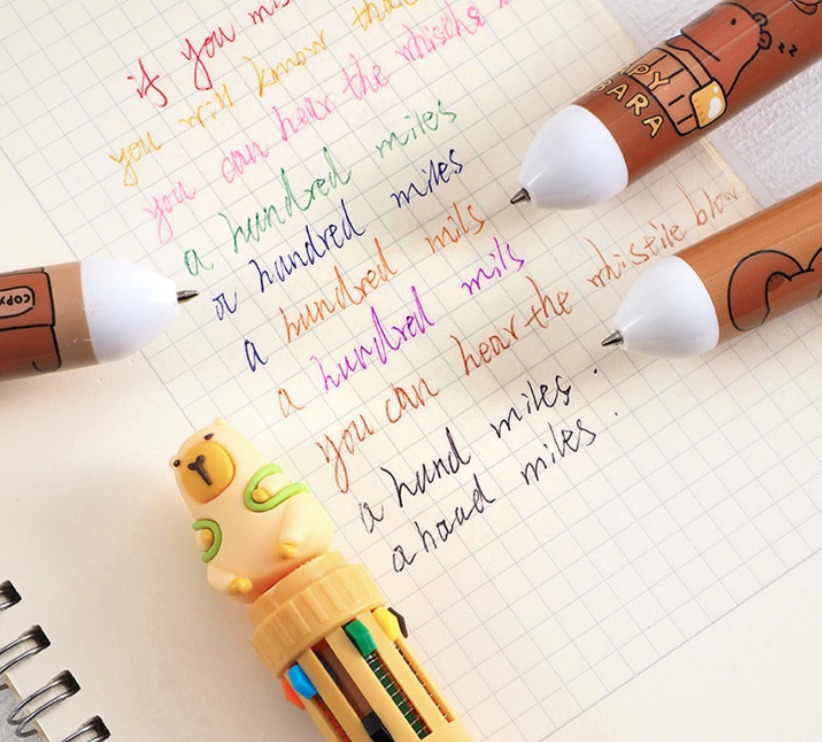 if you mis
you will know that
you can hear the whistle
a hundred miles
a hundred miles
a hundred mils
a hundred mils
you can hear the whistile blow
a hund miles.
a haad miles.
PY
BARA
zz
COPY